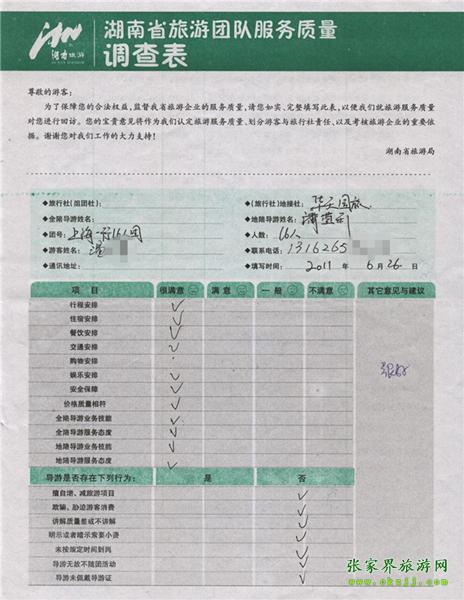 湖南旅游
湖南省旅游团队服务质量
调查表
尊敬的游客：
为了保障您的合法权益，监督我省旅游企业的服务质量，请您如实、完整填写此表，以便我们就旅游服务质量
对您进行回访。您的宝贵意见将作为我们认定旅游服务质量、划分游客与旅行社责任、以及考核旅游企业的重要依
据。谢谢您对我们工作的大力支持！
湖南省旅游局
◆旅行社(组团社)： ◆(旅行社)地接社：华天国旅
◆全陪导游姓名： ◆地陪导游姓名：
◆团号：上海一行161团 ◆人数：161人
◆游客姓名： ◆联系电话：1316265
◆通讯地址： ◆填写时间：2011年6月26日
项 目 很满意 满 意 一 般 不满意 其它意见与建议
行程安排 ✓
住宿安排 ✓
餐饮安排 ✓
交通安排 ✓
购物安排
娱乐安排 ✓
安全保障 ✓
价格质量相符 ✓
全陪导游业务技能 ✓
全陪导游服务态度 ✓
地陪导游业务技能 ✓
地陪导游服务态度 ✓
很好
导游是否存在下列行为： 是 否
擅自增、减旅游项目 ✓
欺骗、胁迫游客消费 ✓
讲解质量差或不讲解 ✓
明示或者暗示索要小费 ✓
未按规定时间到岗 ✓
导游无故不随团活动 ✓
导游未佩戴导游证 ✓
张家界旅游网
www.okzjj.com